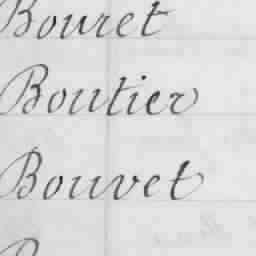 Bouret
Boutier
Bouvet